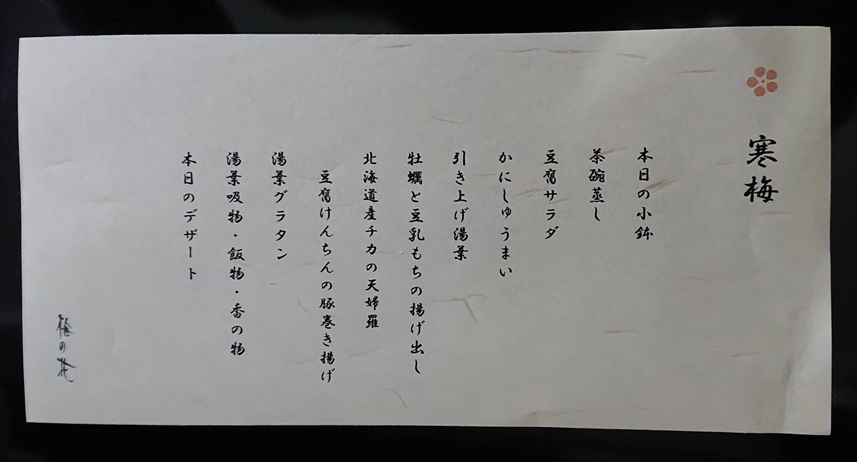 寒梅
本日の小鉢
茶碗蒸し
豆腐サラダ
かにしゅうまい
引き上げ湯葉
牡蠣と豆乳もちの揚げ出し
北海道産チカの天婦羅
豆腐けんちんの豚巻き揚げ
湯葉グラタン
湯葉吸物・飯物・香の物
本日のデザート
梅の花